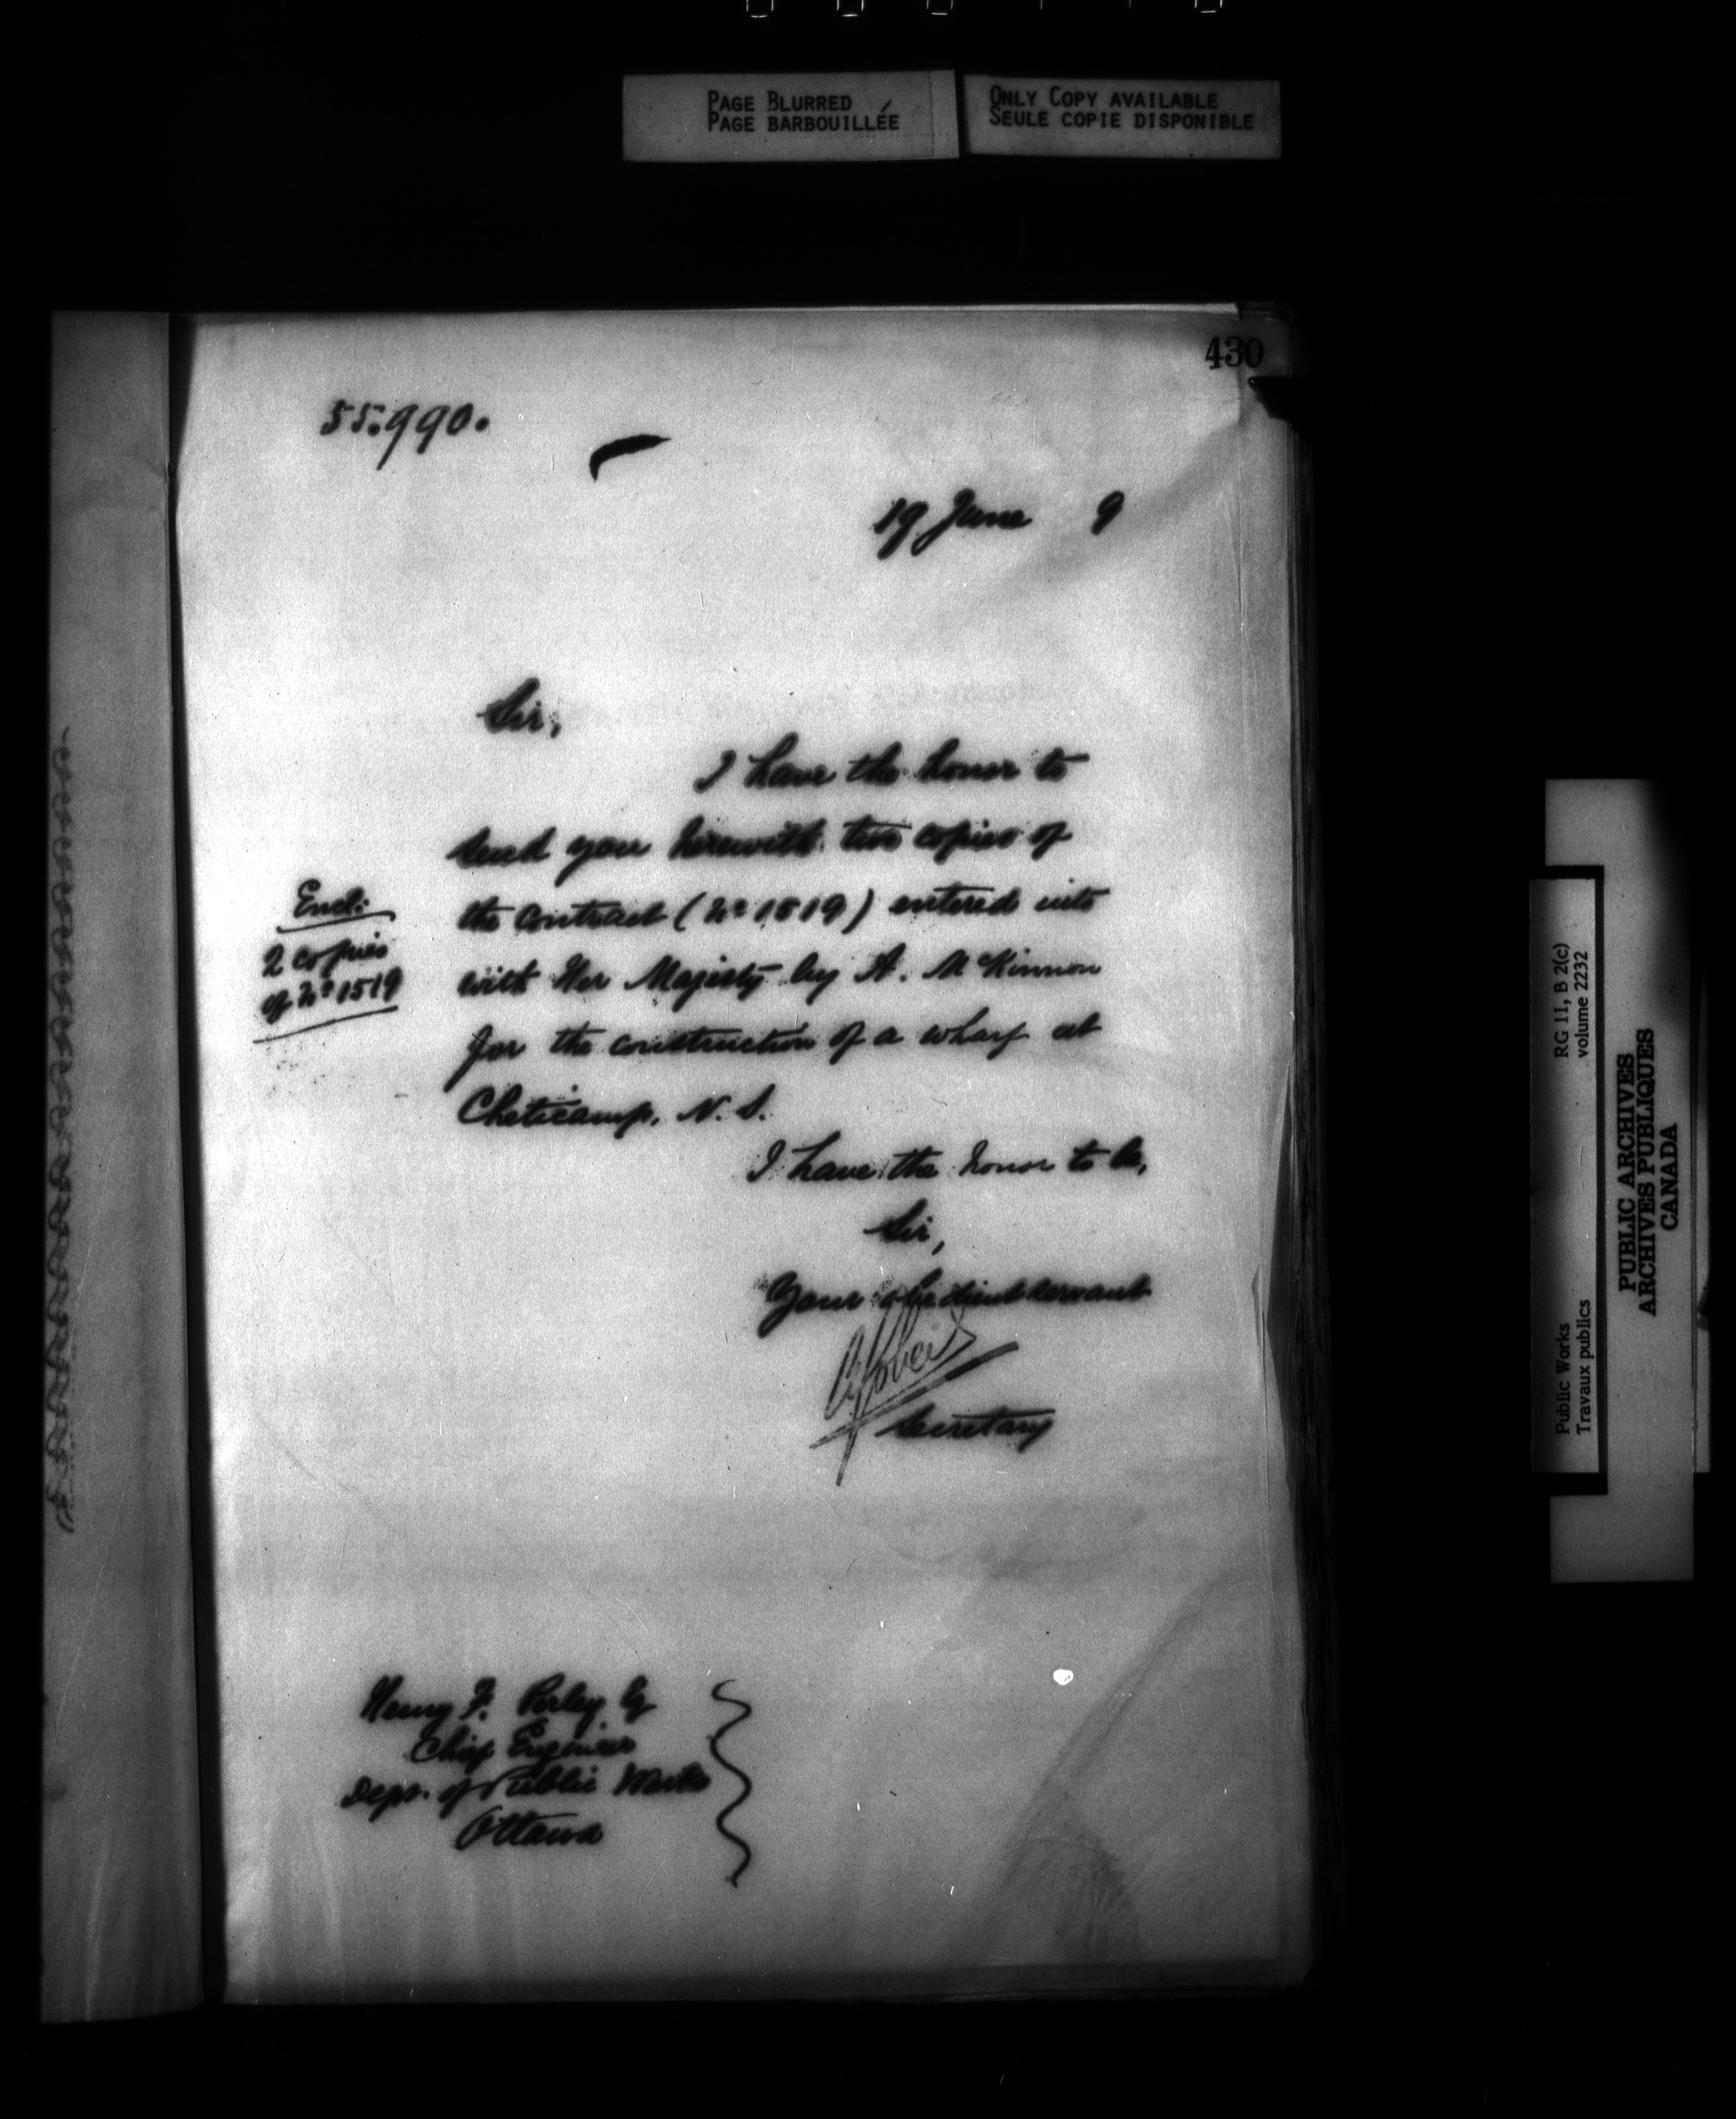 PAGE BLURRED
PAGE BARBOUILLÉE
ONLY COPY AVAILABLE
SEULE COPIE DISPONIBLE
430
55.990.
19 June 9
Sir,
I have the honor to
send you herewith two copies of
the contract (No 1519) entered into
with Her Majesty by A. McKinnon
for the construction of a wharf at
Cheticamp, N. S.
Encl:
2 copies
of No 1519
I have the honor to be,
Sir,
Your obedient servant
Secretary
Henry F. Perley, Esq
Chief Engineer
Dept. of Public Works
Ottawa
RG 11, B 2(c)
volume 2232
Public Works
Travaux publics
PUBLIC ARCHIVES
ARCHIVES PUBLIQUES
CANADA